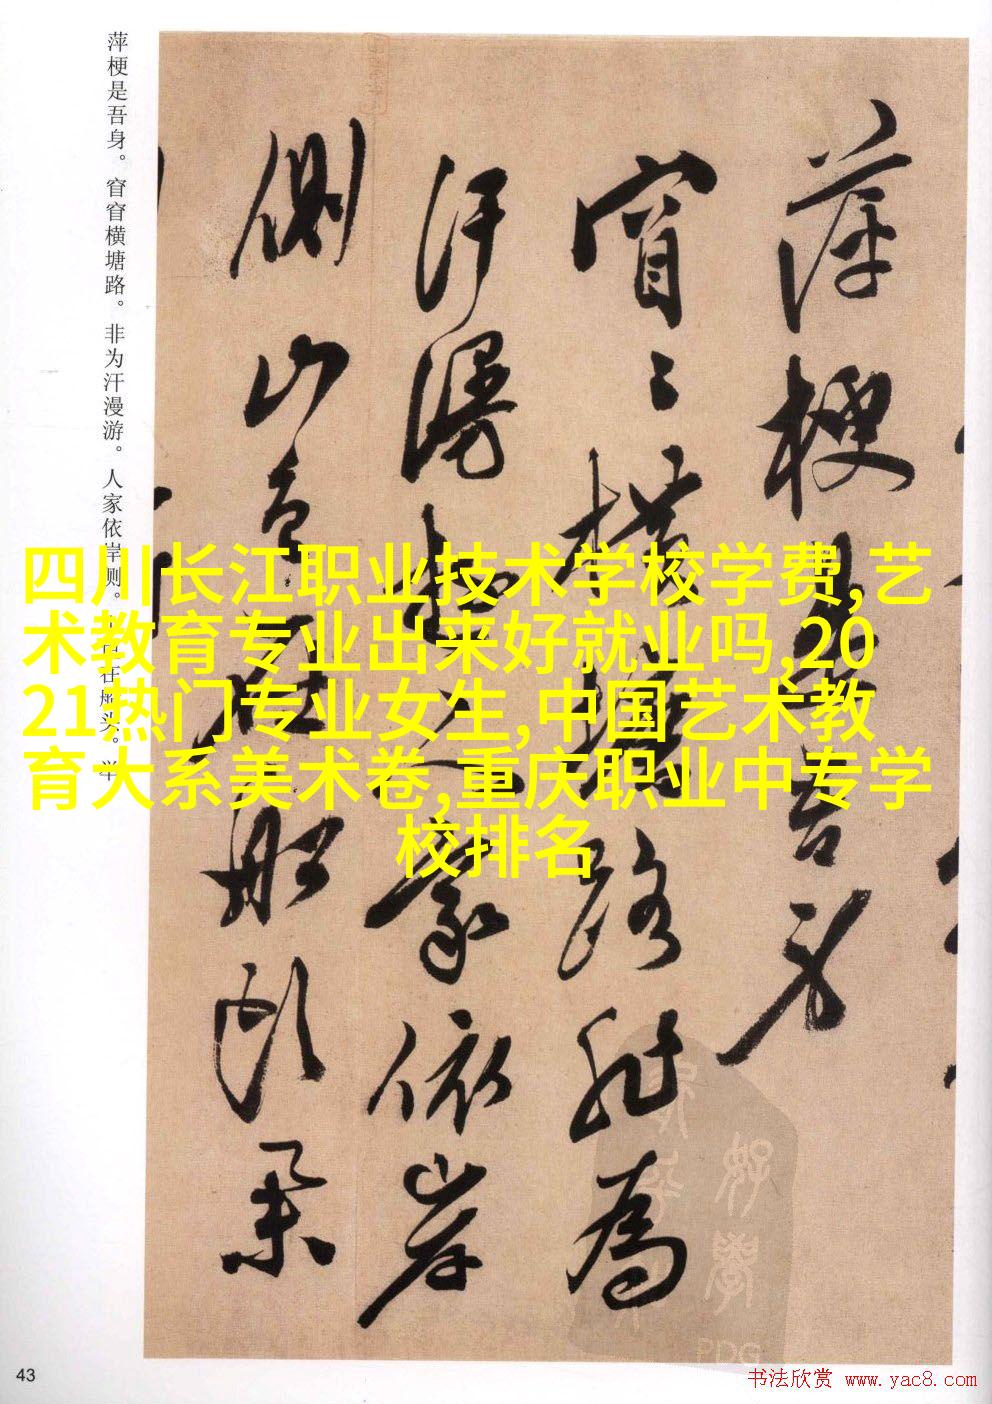 萍梗是吾身。窅窅横塘路。非为汗漫游。人家依岸侧。
萍梗是吾身
窅〻橫塘路非為
汗漫遊人家依岸
側山在船頭
四川长江职业技术学校学费,艺
术教育专业出来好就业吗,20
21热门专业女生,中国艺术教
育大系美术卷,重庆职业中专学
校排名
PDG
43
书法欣赏 www.yac8.com